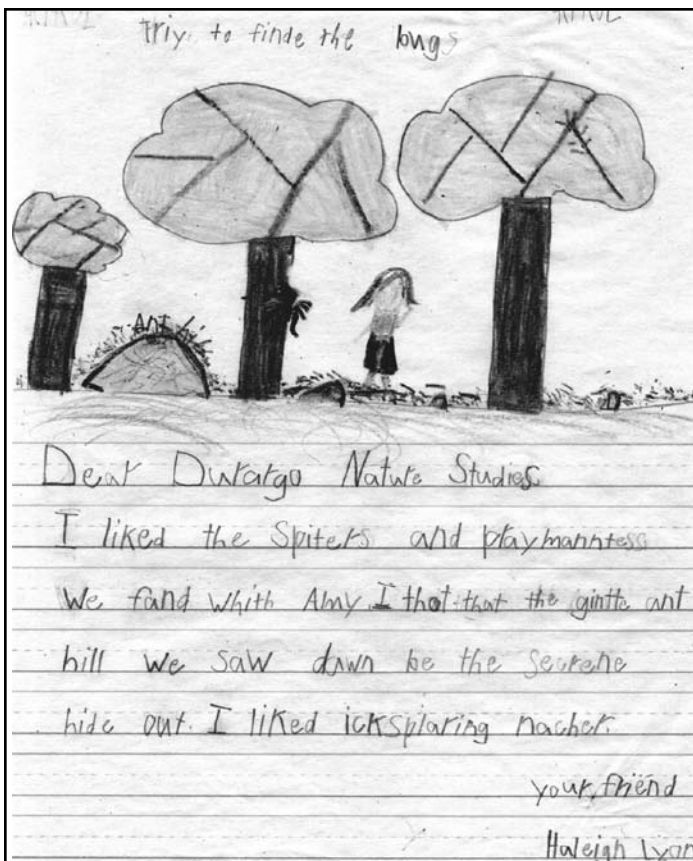 triy to finde the bugs
ANT
Dear Durargo Nature Studies
I liked the Spiters and playmanntess
We fand whith Amy. I thot that the gintte ant
hill we saw down be the secrene
hide out. I liked icksplaring nacher.
your friend
Haleigh Lyan